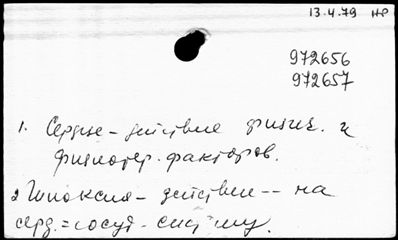 13.4.79 НР
972656
972657
1. Сердце – действие физич. и
физиотер. факторов.
2 Гипоксия – действие -- на
серд.=сосуд. систему.